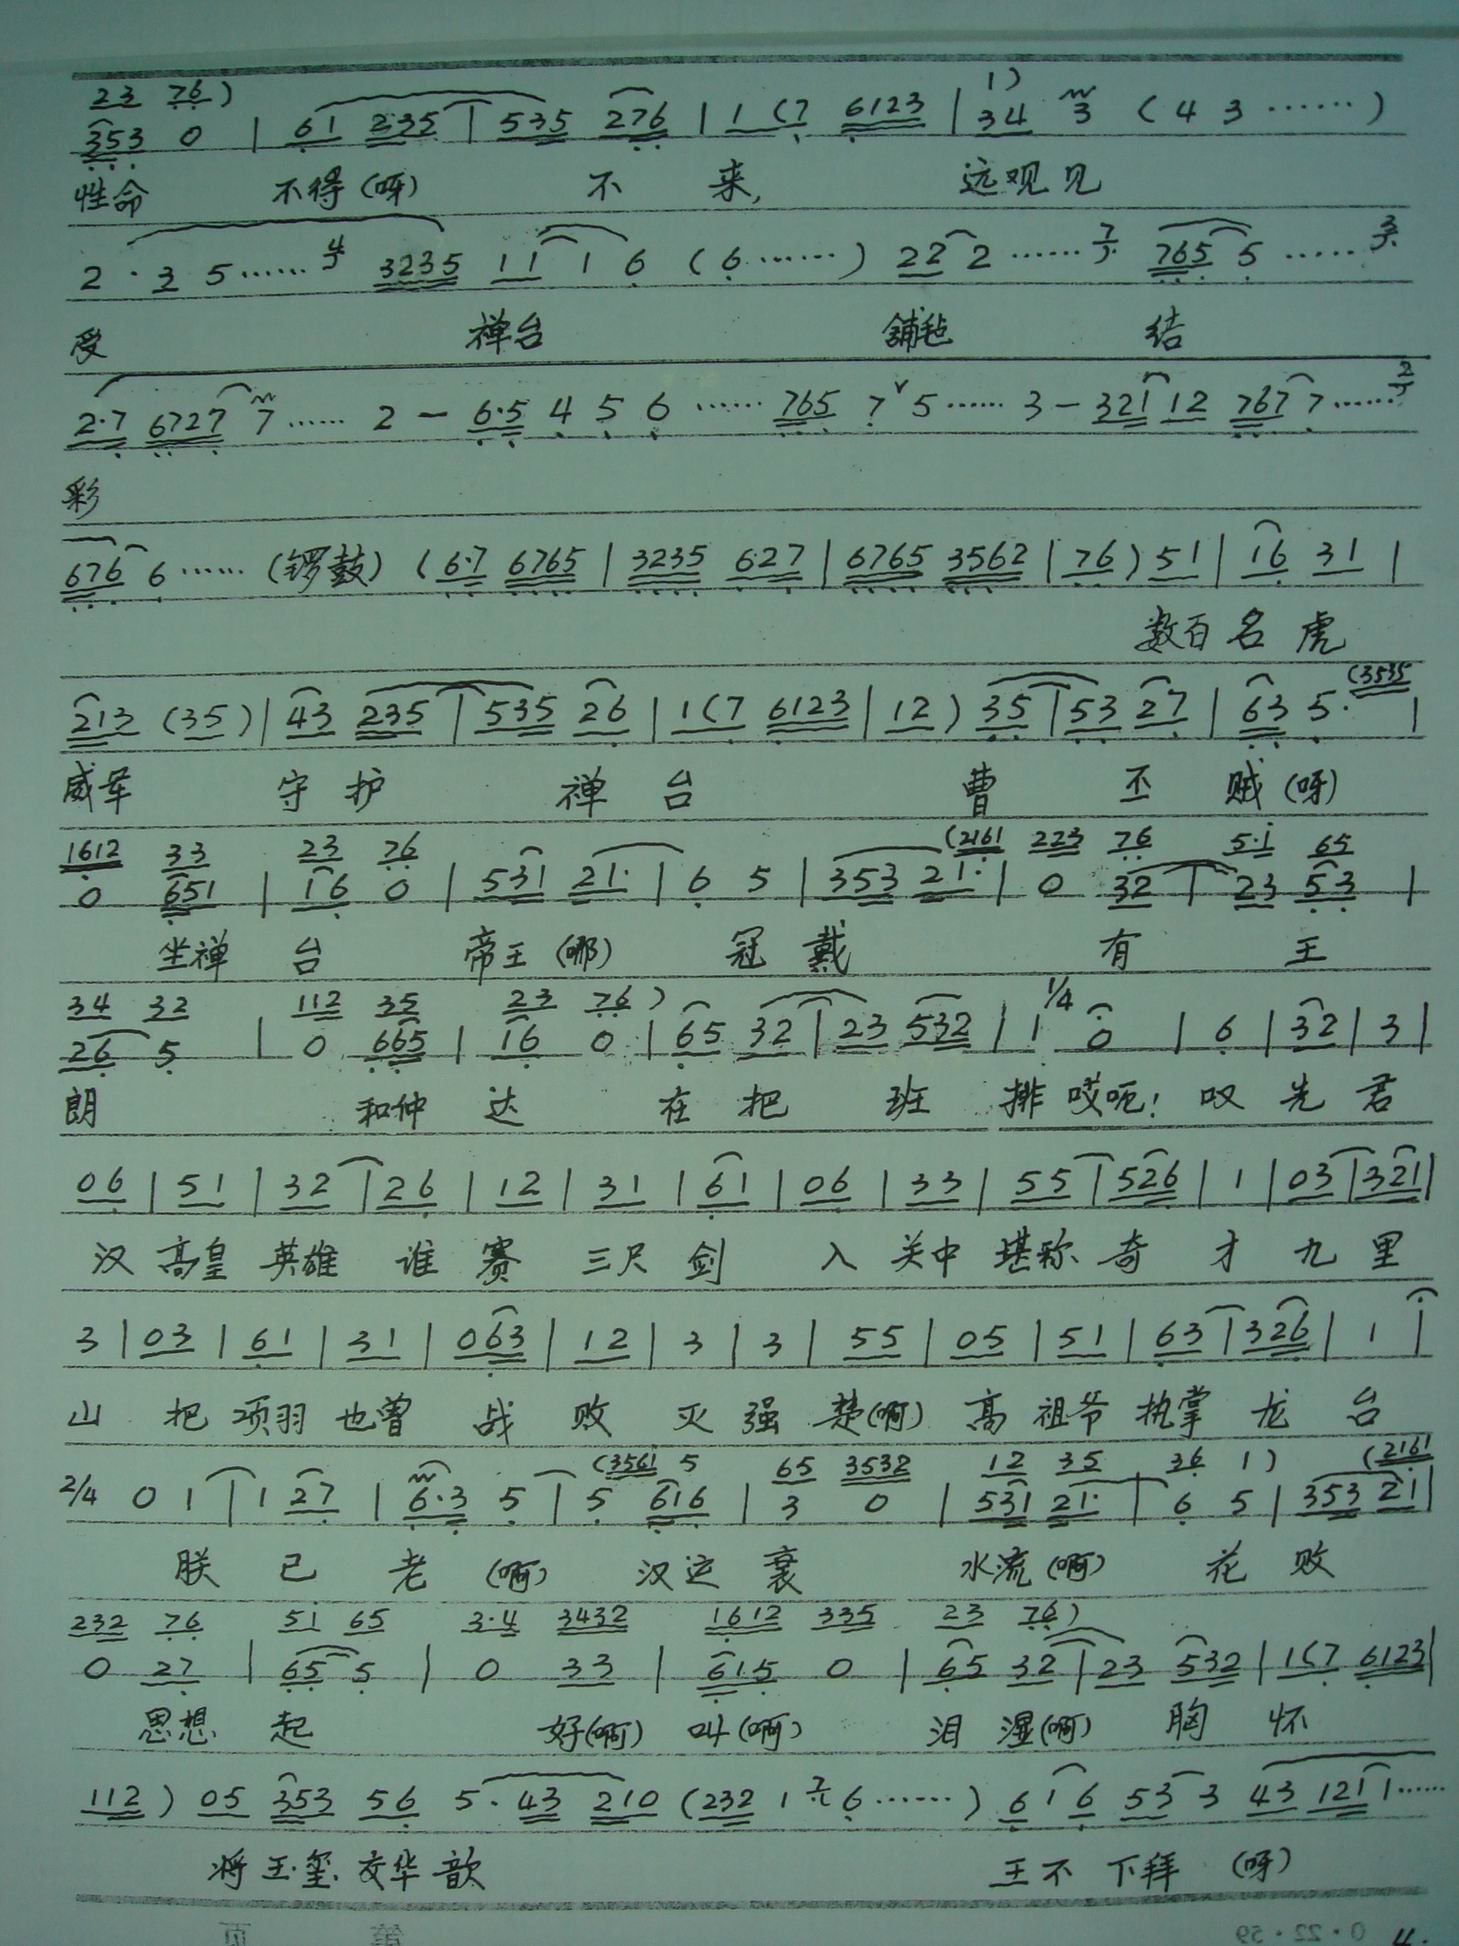 23 76)
353 0 | 61 2·35 | 535 276 | 1 (7 6123 | 34 3 (4 3 ……)
1)
性命 不得(呀) 不 来, 远观见
2 · 3 5 …… 4 3235 11 1 6 (6 ……) 22 2 …… 7 765 5 …… 3
受 禅台 铺毡 结
2·7 6727 7 …… 2 — 6·5 4 5 6 …… 765 7 ˅ 5 …… 3 — 321 12 767 7 …… 2
彩
676 6 …… (锣鼓) (6·7 6765 | 3235 6·27 | 6765 3562 | 76) 51 | 16 31 |
数百名虎
213 (35) | 43 235 | 535 26 | 1(7 6123 | 12) 35 | 53 27 | 63 5· (3535 |
威军 守护 禅台 曹 丕 贼(呀)
1612 33 23 76 (2161 223 76 5·i 65
0 651 | 16 0 | 531 21· | 6 5 | 353 21· | 0 32 | 23 53 |
坐禅 台 帝王(哪) 冠戴 有 王
34 32 112 35 23 76) 1/4
26 5 | 0 665 | 16 0 | 65 32 | 23 532 | 1 0 | 6 | 32 | 3 |
朗 和仲达 在把 班 排 哎呃! 叹先君
06 | 51 | 32 | 26 | 12 | 31 | 61 | 06 | 33 | 55 | 526 | 1 | 03 | 321 |
汉高皇 英雄 谁赛 三尺剑 入关中 堪称奇 才九里
3 | 03 | 61 | 31 | 063 | 12 | 3 | 3 | 55 | 05 | 51 | 63 | 326 | 1 |
山 把项羽也曾 战败 灭强楚(啊) 高祖爷执掌 龙台
(3561 5 65 3532 12 35 36 1) (2161
2/4 0 1 | 1 27 | 6·3 5 | 5 616 | 3 0 | 531 21· | 6 5 | 353 21 |
朕已老(啊) 汉运衰 水流(啊) 花败
232 76 5i 65 3·4 3432 1612 335 23 76)
0 27 | 65 5 | 0 33 | 61·5 0 | 65 32 | 23 532 | 1(7 6123 |
思想 起 好(啊) 叫(啊) 泪湿(啊) 胸怀
112) 05 353 56 5· 43 210 (232 1 7 6 ……) 6 1 6 53 3 43 121 1 ……
将玉玺交华歆 王不下拜(呀)
第 页
0·22·59
4.